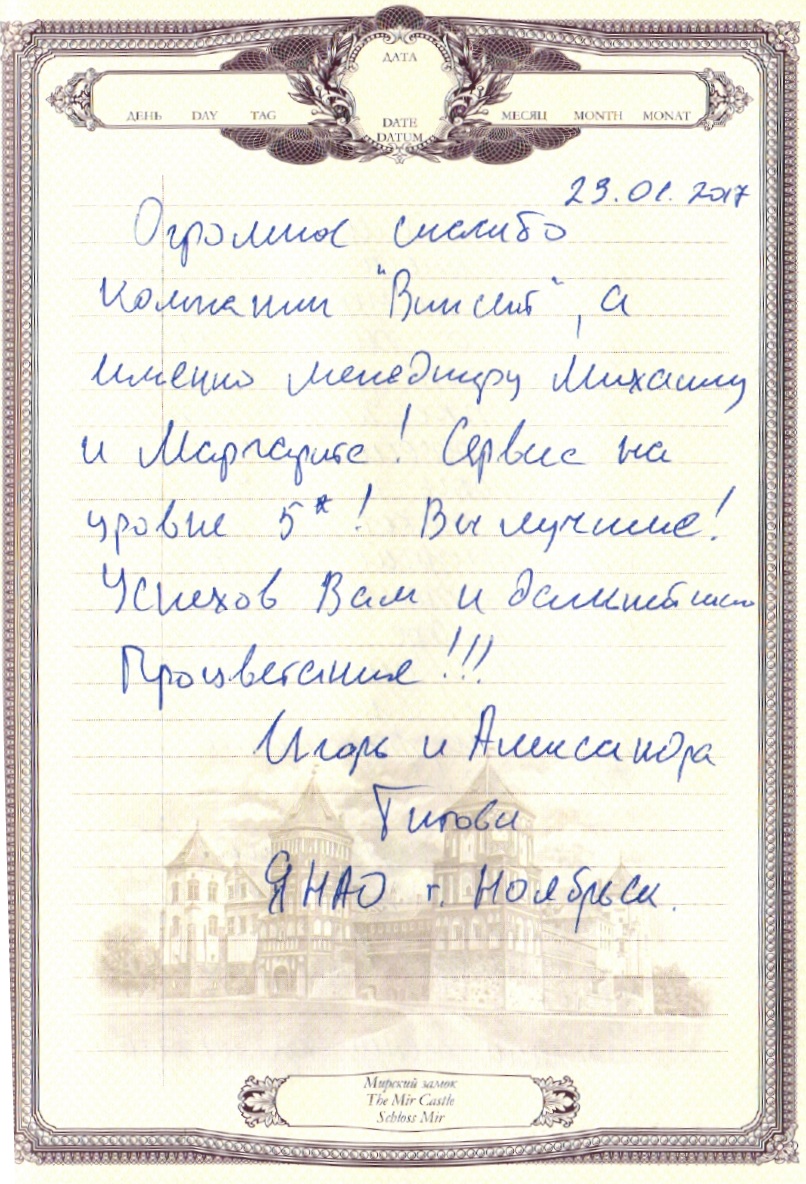 ДАТА
ДЕНЬ DAY TAG
DATE
DATUM
МЕСЯЦ MONTH MONAT
23.01.2017
Огромное спасибо
компании "Винсент", а
именно менеджеру Михаилу
и Маргарите! Сервис на
уровне 5*! Вы лучшие!
Успехов Вам и дальнейшего
Процветания!!!
Игорь и Александра
Титовы
ЯНАО г. Ноябрьск.
Мирский замок
The Mir Castle
Schloss Mir